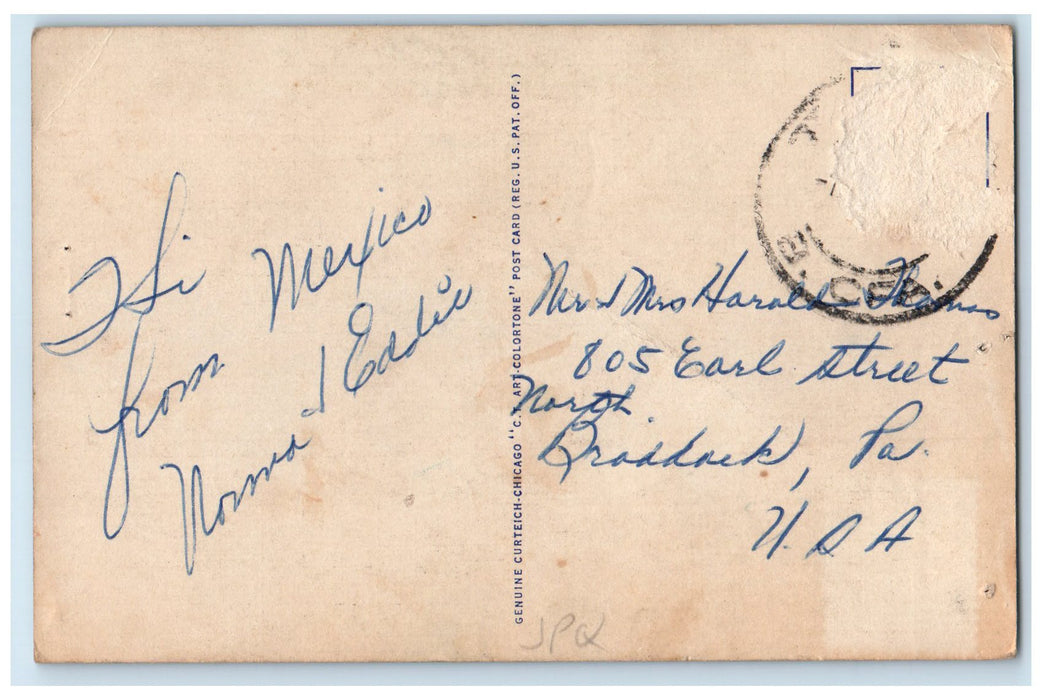 Hi Mexico
from
Norma & Eddie
GENUINE CURTEICH-CHICAGO "C.T. ART-COLORTONE" POST CARD (REG. U.S. PAT. OFF.)
Mr & Mrs Harold Thomas
805 Earl Street
North
Braddock, Pa.
U.S.A
JPQ